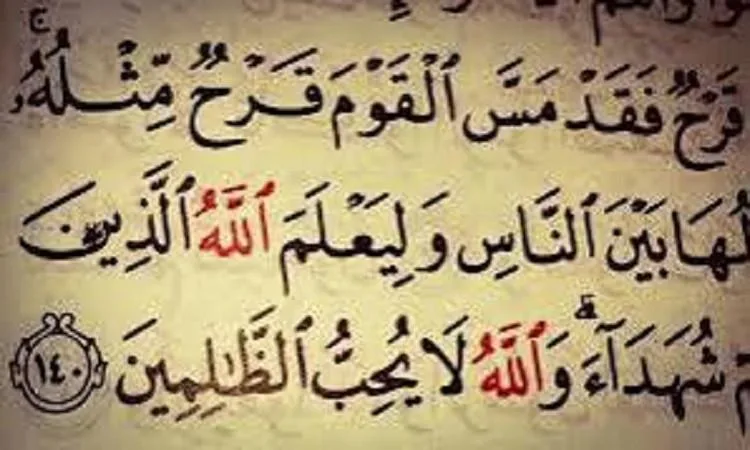 قَرْحٌ فَقَدْ مَسَّ ٱلْقَوْمَ قَرْحٌ مِّثْلُهُۥ ۚ
لُهَا بَيْنَ ٱلنَّاسِ وَلِيَعْلَمَ ٱللَّهُ ٱلَّذِينَ
شُهَدَآءَ ۗ وَٱللَّهُ لَا يُحِبُّ ٱلظَّٰلِمِينَ ١٤٠